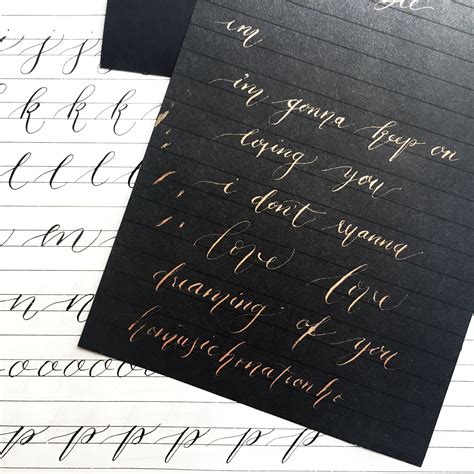 im
i'm gonna keep on
loving you
i don't wanna
love love
dreaming of you
k k k k
l l l l
n n
p p p p p p p